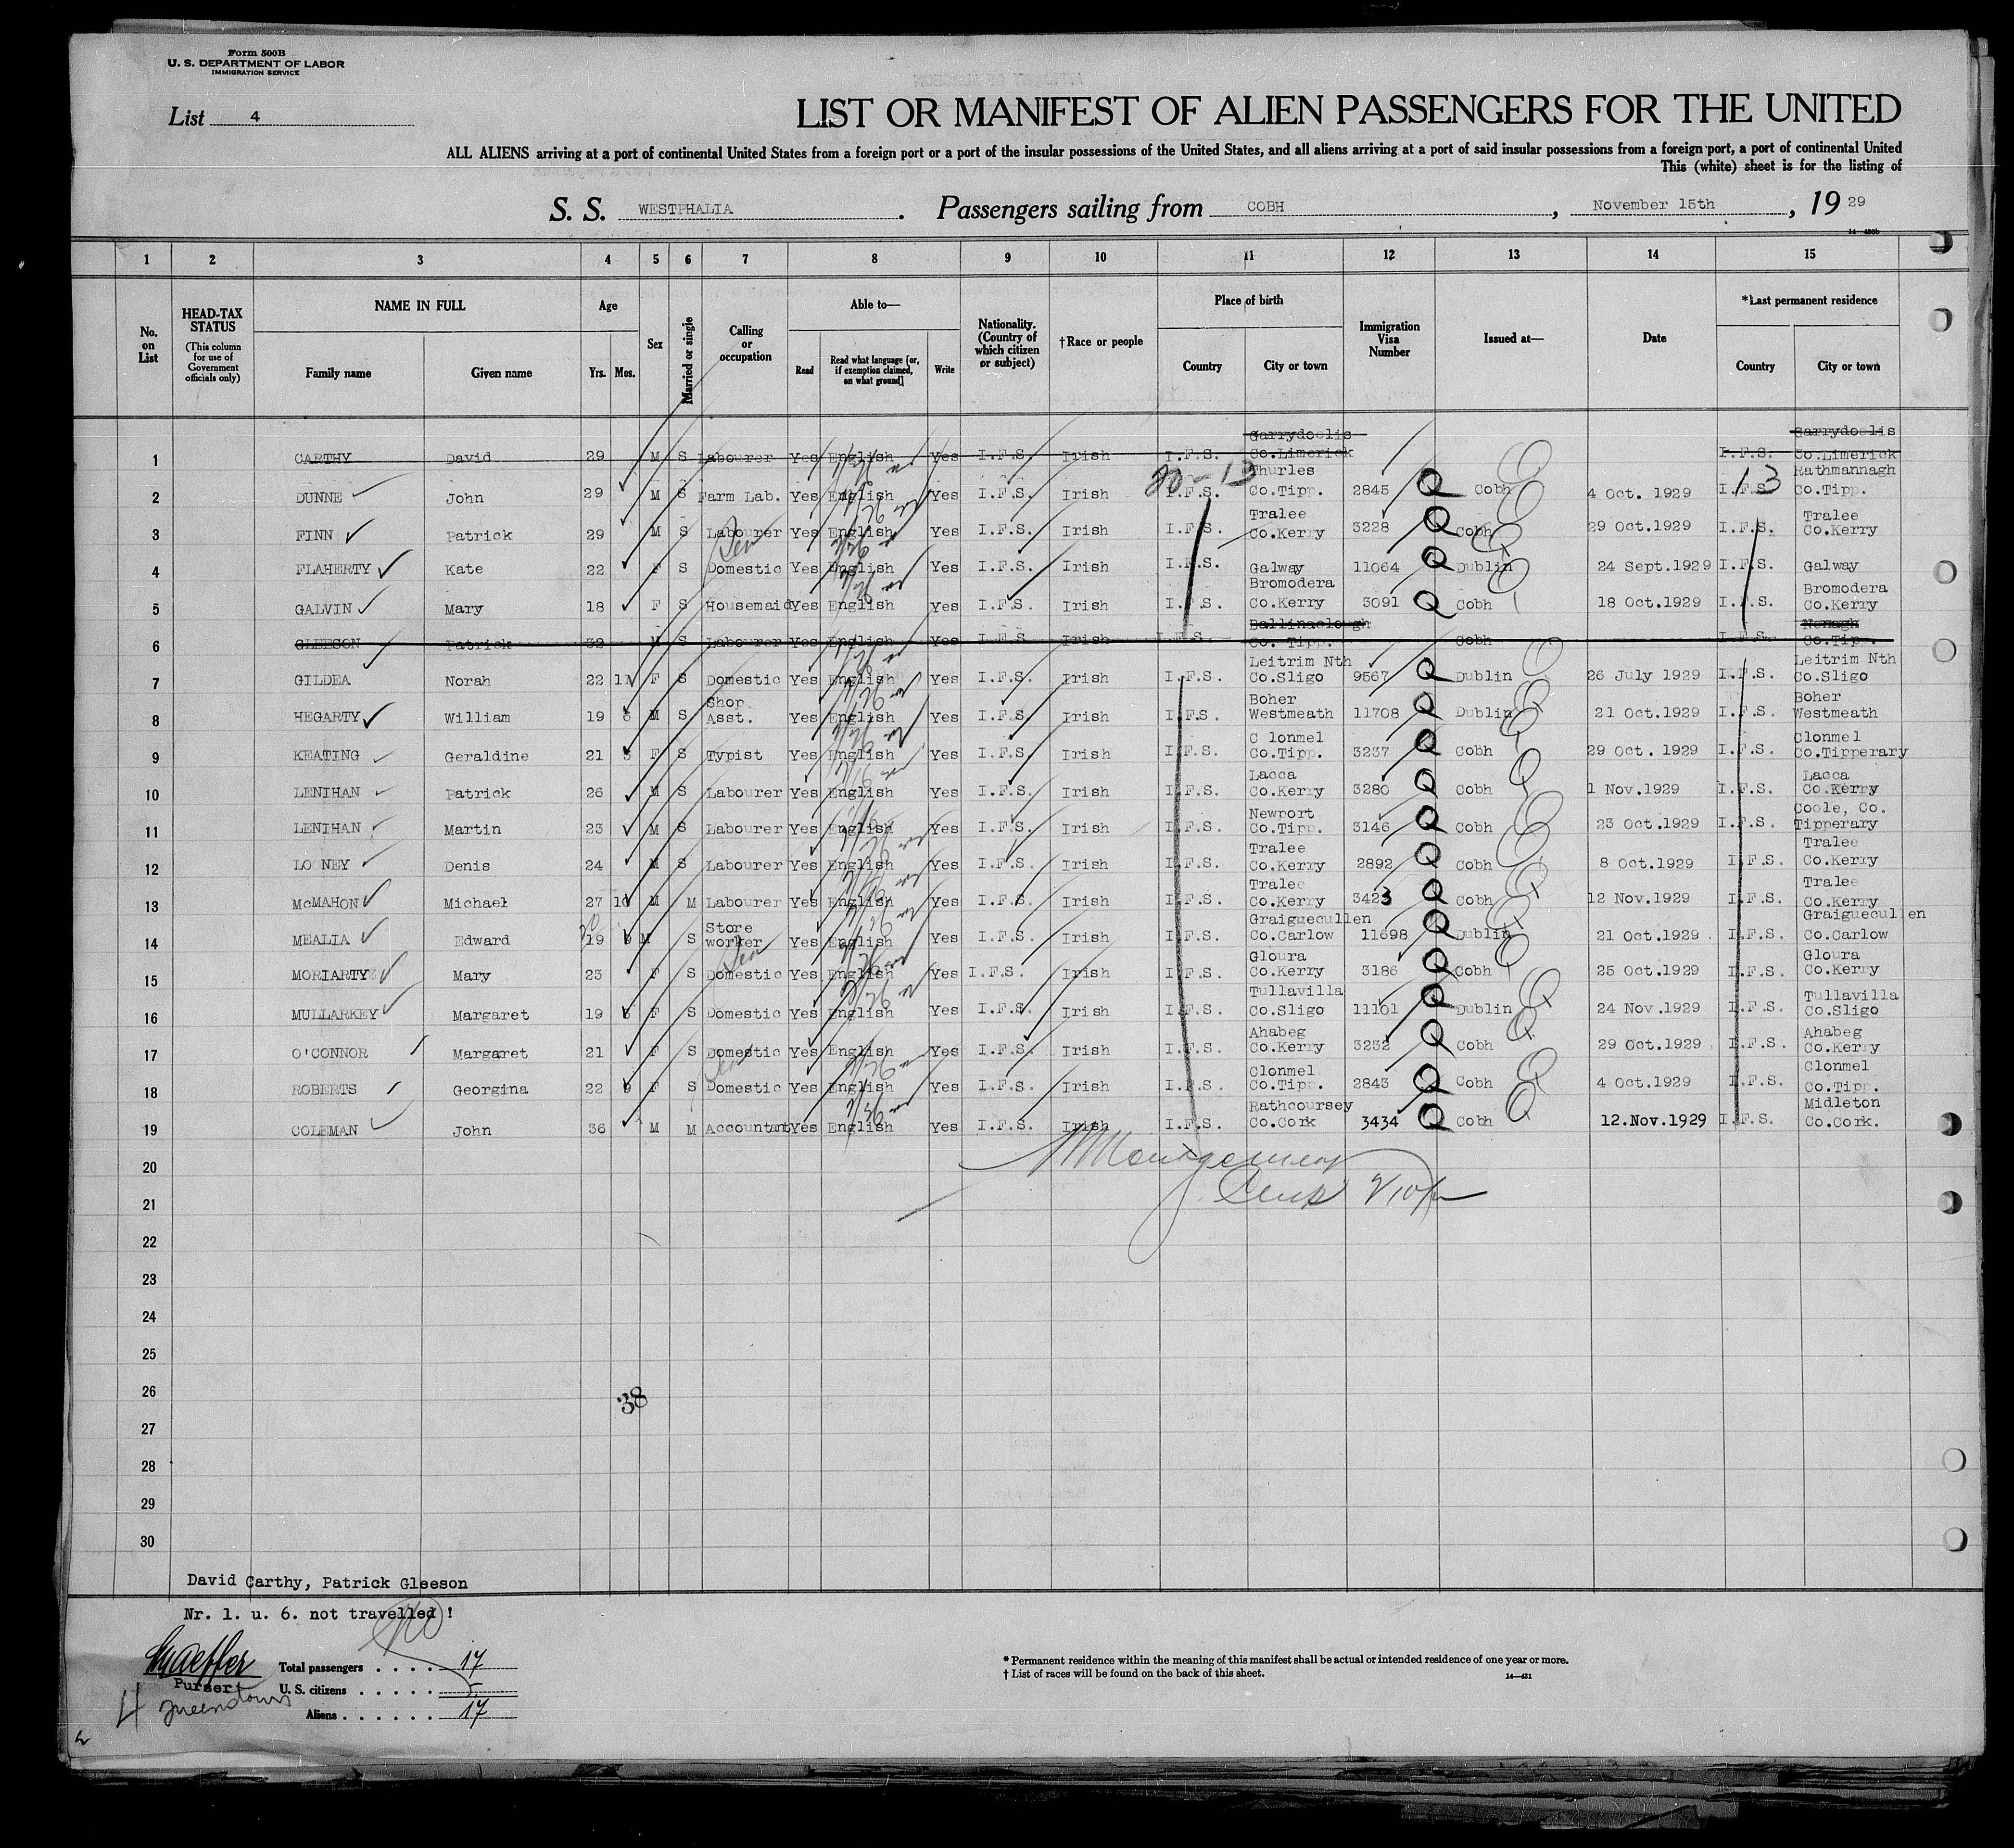 Form 500B
U. S. DEPARTMENT OF LABOR
IMMIGRATION SERVICE
List 4
LIST OR MANIFEST OF ALIEN PASSENGERS FOR THE UNITED
ALL ALIENS arriving at a port of continental United States from a foreign port or a port of the insular possessions of the United States, and all aliens arriving at a port of said insular possessions from a foreign port, a port of continental United
This (white) sheet is for the listing of
S. S. WESTPHALIA. Passengers sailing from COBH, November 15th, 19 29
1 2 3 4 5 6 7 8 9 10 11 12 13 14 15
No. on List
HEAD-TAX STATUS (This column for use of Government officials only)
NAME IN FULL
Family name Given name
Age
Yrs. Mos.
Sex
Married or single
Calling or occupation
Able to—
Read Read what language [or, if exemption claimed, on what ground] Write
Nationality. (Country of which citizen or subject)
†Race or people
Place of birth
Country City or town
Immigration Visa Number
Issued at—
Date
*Last permanent residence
Country City or town
1 CARTHY David 29 M S Labourer Yes English Yes I.F.S. Irish I.F.S. Garrydoolis Co.Limerick I.F.S. Garrydoolis Co.Limerick
20-13 13
2 DUNNE John 29 M S Farm Lab. Yes English Yes I.F.S. Irish I.F.S. Thurles Co.Tipp. 2845 Cobh 4 Oct. 1929 I.F.S. Rathmannagh Co.Tipp.
3 FINN Patrick 29 M S Labourer Yes English Yes I.F.S. Irish I.F.S. Tralee Co.Kerry 3228 Cobh 29 Oct.1929 I.F.S. Tralee Co.Kerry
4 FLAHERTY Kate 22 F S Domestic Yes English Yes I.F.S. Irish I.F.S. Galway 11064 Dublin 24 Sept.1929 I.F.S. Galway
5 GALVIN Mary 18 F S Housemaid Yes English Yes I.F.S. Irish I.F.S. Bromodera Co.Kerry 3091 Cobh 18 Oct.1929 I.F.S. Bromodera Co.Kerry
6 GLEESON Patrick 32 M S Labourer Yes English Yes I.F.S. Irish I.F.S. Ballinaclough Co. Tipp. Cobh I.F.S. Nenagh Co.Tipp.
7 GILDEA Norah 22 11 F S Domestic Yes English Yes I.F.S. Irish I.F.S. Leitrim Nth Co.Sligo 9567 Dublin 26 July 1929 I.F.S. Leitrim Nth Co.Sligo
8 HEGARTY William 19 6 M S Shop Asst. Yes English Yes I.F.S. Irish I.F.S. Boher Westmeath 11708 Dublin 21 Oct.1929 I.F.S. Boher Westmeath
9 KEATING Geraldine 21 3 F S Typist Yes English Yes I.F.S. Irish I.F.S. C lonmel Co.Tipp. 3237 Cobh 29 Oct. 1929 I.F.S. Clonmel Co.Tipperary
10 LENIHAN Patrick 26 M S Labourer Yes English Yes I.F.S. Irish I.F.S. Lacca Co.Kerry 3280 Cobh 1 Nov.1929 I.F.S. Lacca Co.Kerry
11 LENIHAN Martin 23 M S Labourer Yes English Yes I.F.S. Irish I.F.S. Newport Co.Tipp. 3146 Cobh 23 Oct.1929 I.F.S. Coole, Co. Tipperary
12 LOONEY Denis 24 M S Labourer Yes English Yes I.F.S. Irish I.F.S. Tralee Co.Kerry 2892 Cobh 8 Oct.1929 I.F.S. Tralee Co.Kerry
13 McMAHON Michael 27 10 M M Labourer Yes English Yes I.F.S. Irish I.F.S. Tralee Co.Kerry 3423 Cobh 12 Nov.1929 I.F.S. Tralee Co.Kerry
14 MEALIA Edward 20 19 9 M S Store worker Yes English Yes I.F.S. Irish I.F.S. Graiguecullen Co.Carlow 11698 Dublin 21 Oct.1929 I.F.S. Graiguecullen Co.Carlow
15 MORIARTY Mary 23 F S Domestic Yes English Yes I.F.S. Irish I.F.S. Gloura Co.Kerry 3186 Cobh 25 Oct.1929 I.F.S. Gloura Co.Kerry
16 MULLARKEY Margaret 19 6 F S Domestic Yes English Yes I.F.S. Irish I.F.S. Tullavilla Co.Sligo 11101 Dublin 24 Nov.1929 I.F.S. Tullavilla Co.Sligo
17 O'CONNOR Margaret 21 F S Domestic Yes English Yes I.F.S. Irish I.F.S. Ahabeg Co.Kerry 3232 Cobh 29 Oct.1929 I.F.S. Ahabeg Co.Kerry
18 ROBERTS Georgina 22 9 F S Domestic Yes English Yes I.F.S. Irish I.F.S. Clonmel Co.Tipp. 2843 Cobh 4 Oct.1929 I.F.S. Clonmel Co.Tipp.
19 COLEMAN John 36 M M Accountant Yes English Yes I.F.S. Irish I.F.S. Rathcoursey Co.Cork 3434 Cobh 12.Nov.1929 I.F.S. Midleton Co.Cork.
20 Montgomery
21
22
23
24
25
26 38
27
28
29
30
David Carthy, Patrick Gleeson
Nr. 1. u. 6. not travelled !
Purser
4 Queenstown
Total passengers . . . . 17
U. S. citizens . . . . .
Aliens . . . . . . 17
* Permanent residence within the meaning of this manifest shall be actual or intended residence of one year or more.
† List of races will be found on the back of this sheet. 14—431